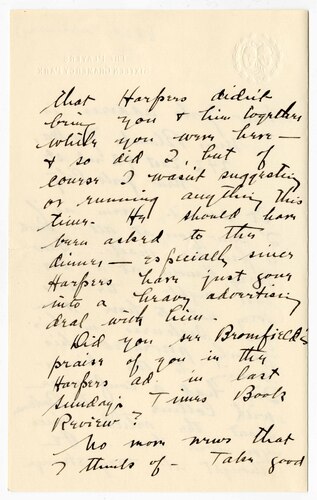 THE PLAYERS
SIXTEEN GRAMERCY PARK
that Harpers didn't
bring you & him together
while you were here—
& so did I, but of
course I wasn't suggesting
or running anything this
time. He should have
been asked to the
dinner — especially since
Harpers have just gone
into a heavy advertising
deal with him.
Did you see Bromfield's
praise of you in the
Harpers ad in last
Sunday's Times Book
Review?
No more news that
I think of — Take good